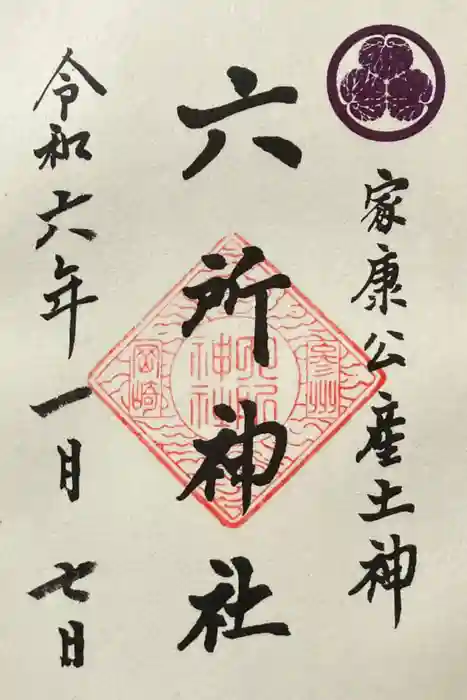 家康公産土神
六所神社
令和六年一月七日
參州
六所神社
岡崎